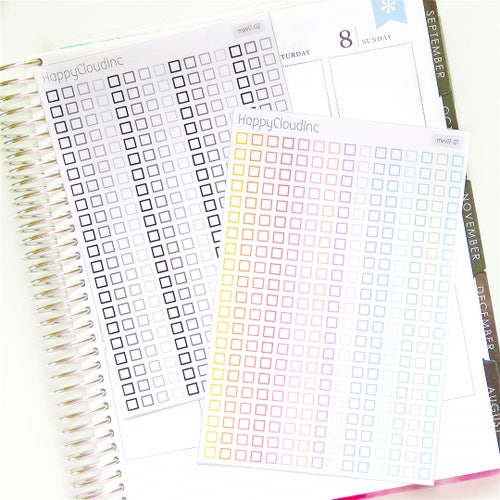 HappyCloudInc
TURDAY
8
SUNDAY
SEPTEMBER
HappyCloudInc
NOVEMBER
DECEMBER
AUGUST